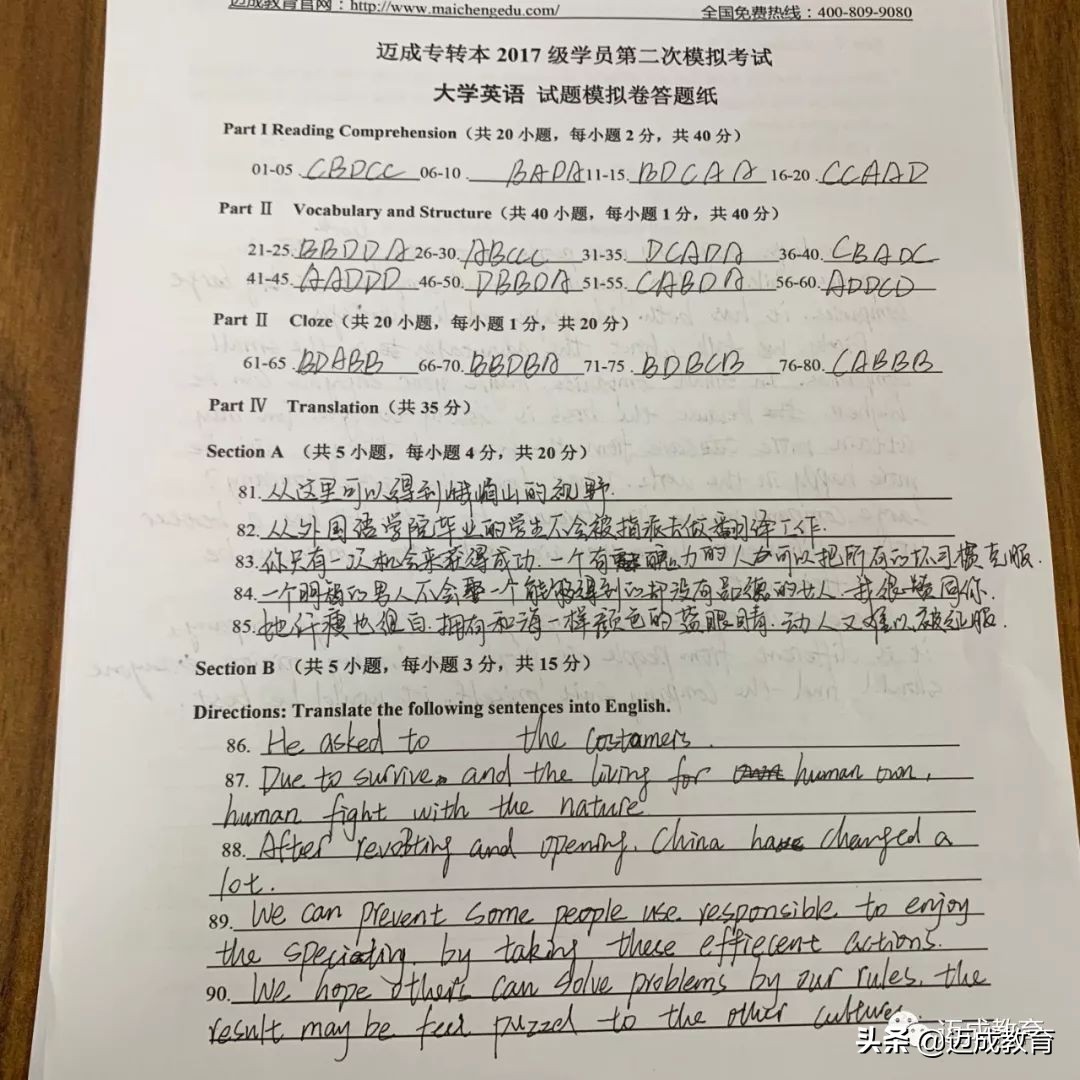 迈成教育官网：http://www.maichengedu.com/ 全国免费热线：400-809-9080
迈成专转本 2017 级学员第二次模拟考试
大学英语 试题模拟卷答题纸
Part I Reading Comprehension（共 20 小题，每小题 2 分，共 40 分）
01-05 CBDCC 06-10 BADA 11-15 BDCAA 16-20 CCAAD
Part Ⅱ Vocabulary and Structure（共 40 小题，每小题 1 分，共 40 分）
21-25 BBDDA 26-30 ABCCC 31-35 DCADA 36-40 CBADC
41-45 AADDD 46-50 DBBDA 51-55 CABDA 56-60 ADDCD
Part Ⅱ Cloze（共 20 小题，每小题 1 分，共 20 分）
61-65 BDABB 66-70 BBDBA 71-75 BDBCB 76-80 CABBB
Part Ⅳ Translation（共 35 分）
Section A （共 5 小题，每小题 4 分，共 20 分）
81. 从这里可以得到峨嵋山的视野.
82. 从外国语学院毕业的学生不会被指派去做翻译工作.
83. 你只有一次机会来获得成功.一个有魄力的人可以把所有的坏习惯克服.
84. 一个明智的男人不会娶一个能够得到的却没有品德的女人.我很赞同你.
85. 她纤瘦也很白.拥有和海一样颜色的蓝眼睛.动人又难以被征服.
Section B （共 5 小题，每小题 3 分，共 15 分）
Directions: Translate the following sentences into English.
86. He asked to the costamers.
87. Due to survive, and the living for human own,
human fight with the nature
88. After revolting and opening, China have changed a
lot.
89. We can prevent some people use responsible to enjoy
the speciating. by taking these effiecent actions.
90. We hope others can solve problems by our rules, the
result may be feel puzzed to the other culture
迈成教育
头条 @迈成教育